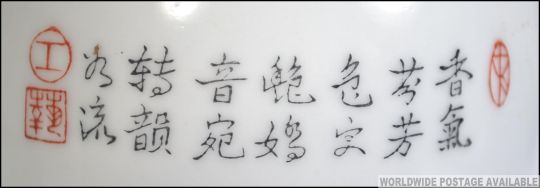 香氣
芬芳
色
艷嬌
音宛
转韻
流
工
WORLDWIDE POSTAGE AVAILABLE